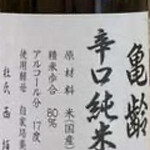 亀齢
辛口純米
原材料 米(国産)
精米歩合 80%
アルコール分 17度
使用酵母 自家培養
杜氏 西垣